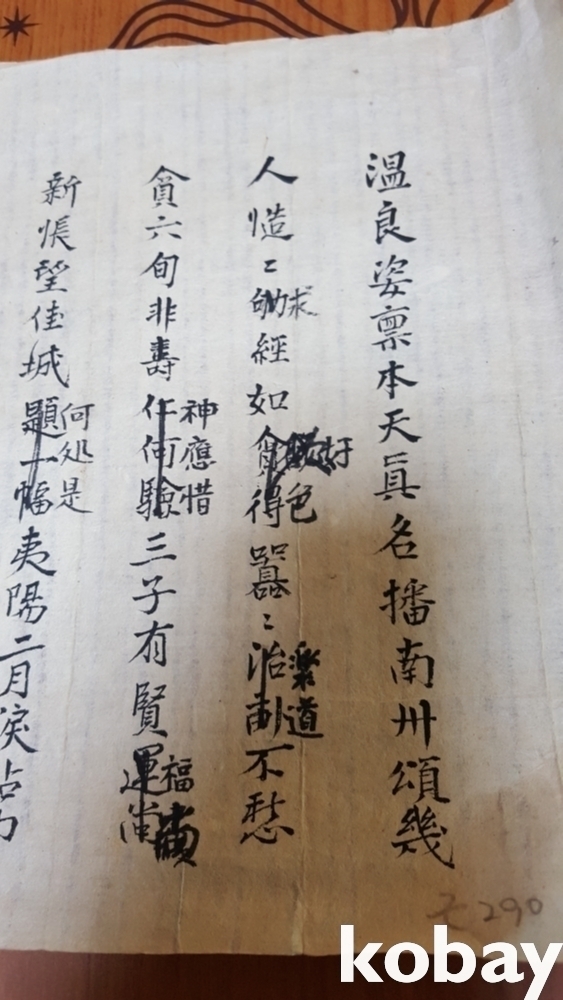 温良姿禀本天眞名播南卅頌幾
人慥〻劬求經如貪好得色囂〻治樂由道不愁
貧六旬非壽仁神何應驗惜三子有賢運福尚
新悵望佳城題何一处幅是夷陽二月淚沾
乙290
kobay